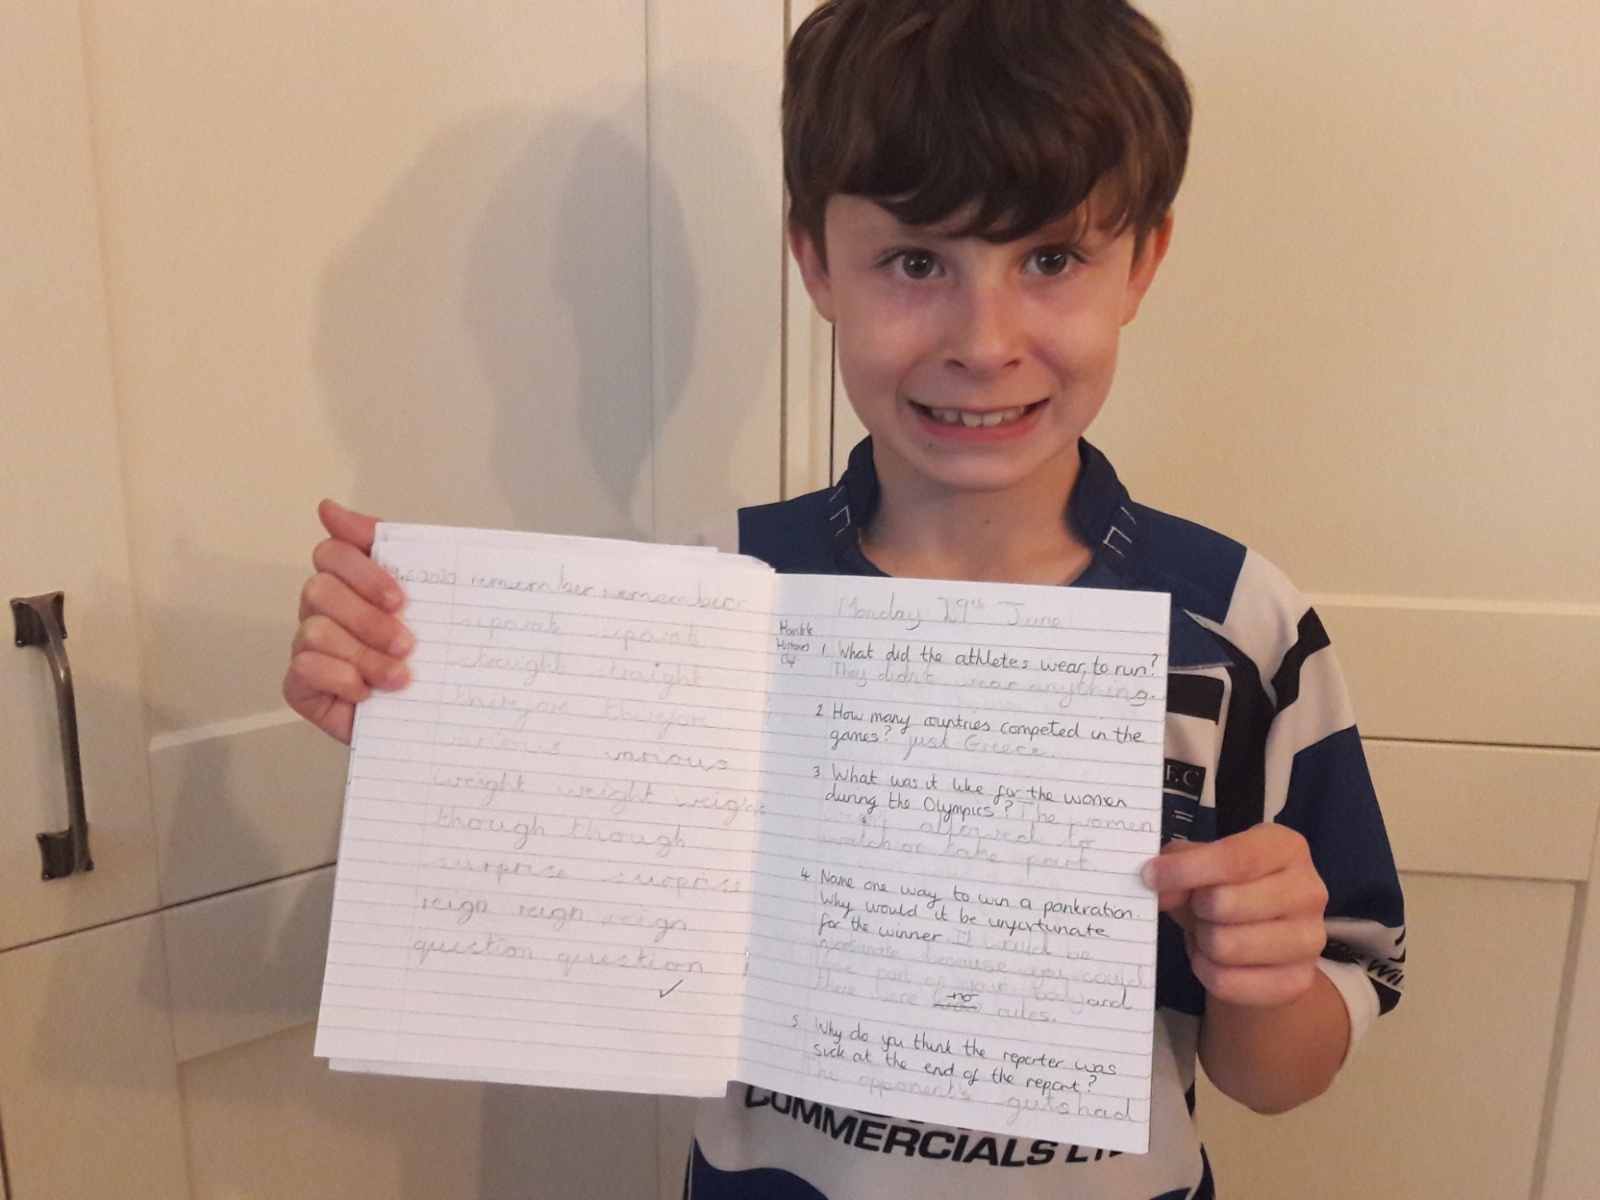 29.6.2020 remember remember
separate separate
straight straight
therefore therefore
various various
weight weight weight
though though
surprise surprise
reign reign reign
question question
Monday 29th June
Horrible
Histories
Clip
1. What did the athletes wear, to run?
They didn't wear anything.
2 How many countries competed in the
games? just Greece.
3 What was it like for the women
during the Olympics? The women
allowed to
watch or take part.
4 Name one way to win a pankration.
Why would it be unfortunate
for the winner. It would be
because you could
part of your body and
there were no rules.
5. Why do you think the reporter was
sick at the end of the report?
The opponent's guts had
F.C
COMMERCIALS